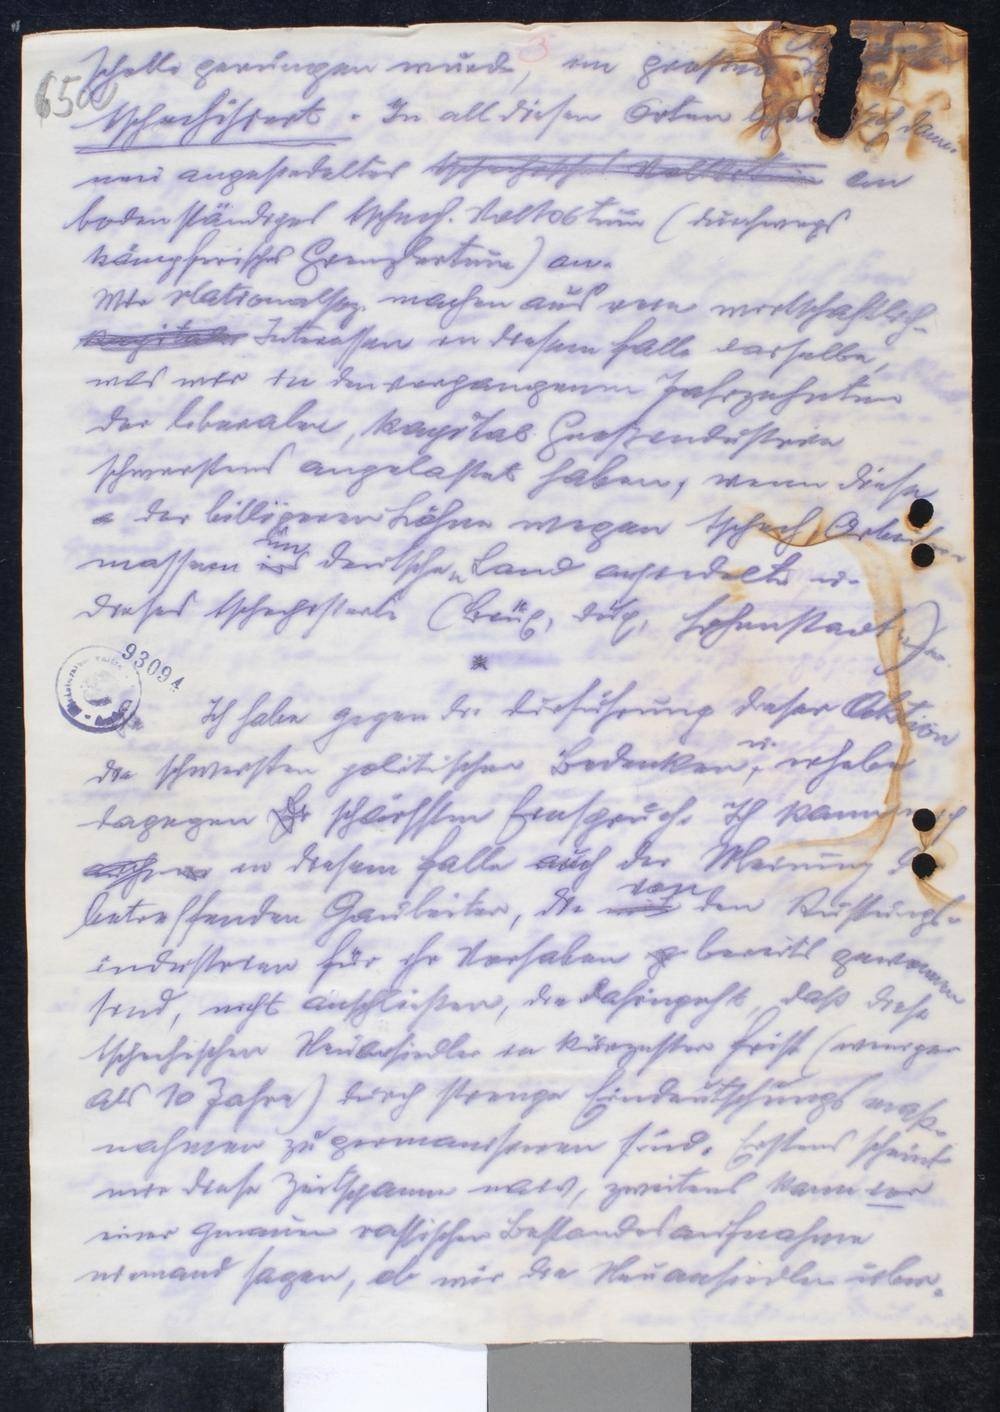 3
650
Scholle gerungen wurde, ein grosser
tschechisiert. In all diesen Orten sich dann
neu angesiedeltes tschechisches Volkstum ein
bodenständiges tschech. Volkstum (durchwegs
kämpferisches Grenzlertum) an.
Wir Nationalsoz. machen aus rein wirtschaftlich.
Interessen in diesem Falle dasselbe,
was wir in den vergangenen Jahrzehnten
der liberalen, kapital. Grossindustrie
schwerstens angelastet haben, wenn diese
der billigeren Löhne wegen tschech. Arbeiter
massen im deutschen Land ansiedelte u.
dieses tschechisierte (Brüx, Dux, Hohenstadt
*
93094
Ich habe gegen die Durführung dieser Aktion
die schwersten politischen Bedenken, u. erhebe
dagegen schärfsten Einspruch. Ich kann mich
in diesem Falle auch der Meinung d
betreffenden Gauleiter, die von den Rüstungs-
industrien für ihr Vorhaben bereits gewonnen
sind, nicht anschliessen, die dahingeht, daß diese
tschechischen Neuansiedler in kürzester Frist (weniger
als 10 Jahre) durch strenge Eindeutschungs maß-
nahmen zu germanisieren sind. Erstens scheint
mir diese Zeitspanne naiv, zweitens kann vor
einer genauen rassischen Bestandesaufnahme
niemand sagen, ob wir die Neuansiedler über-